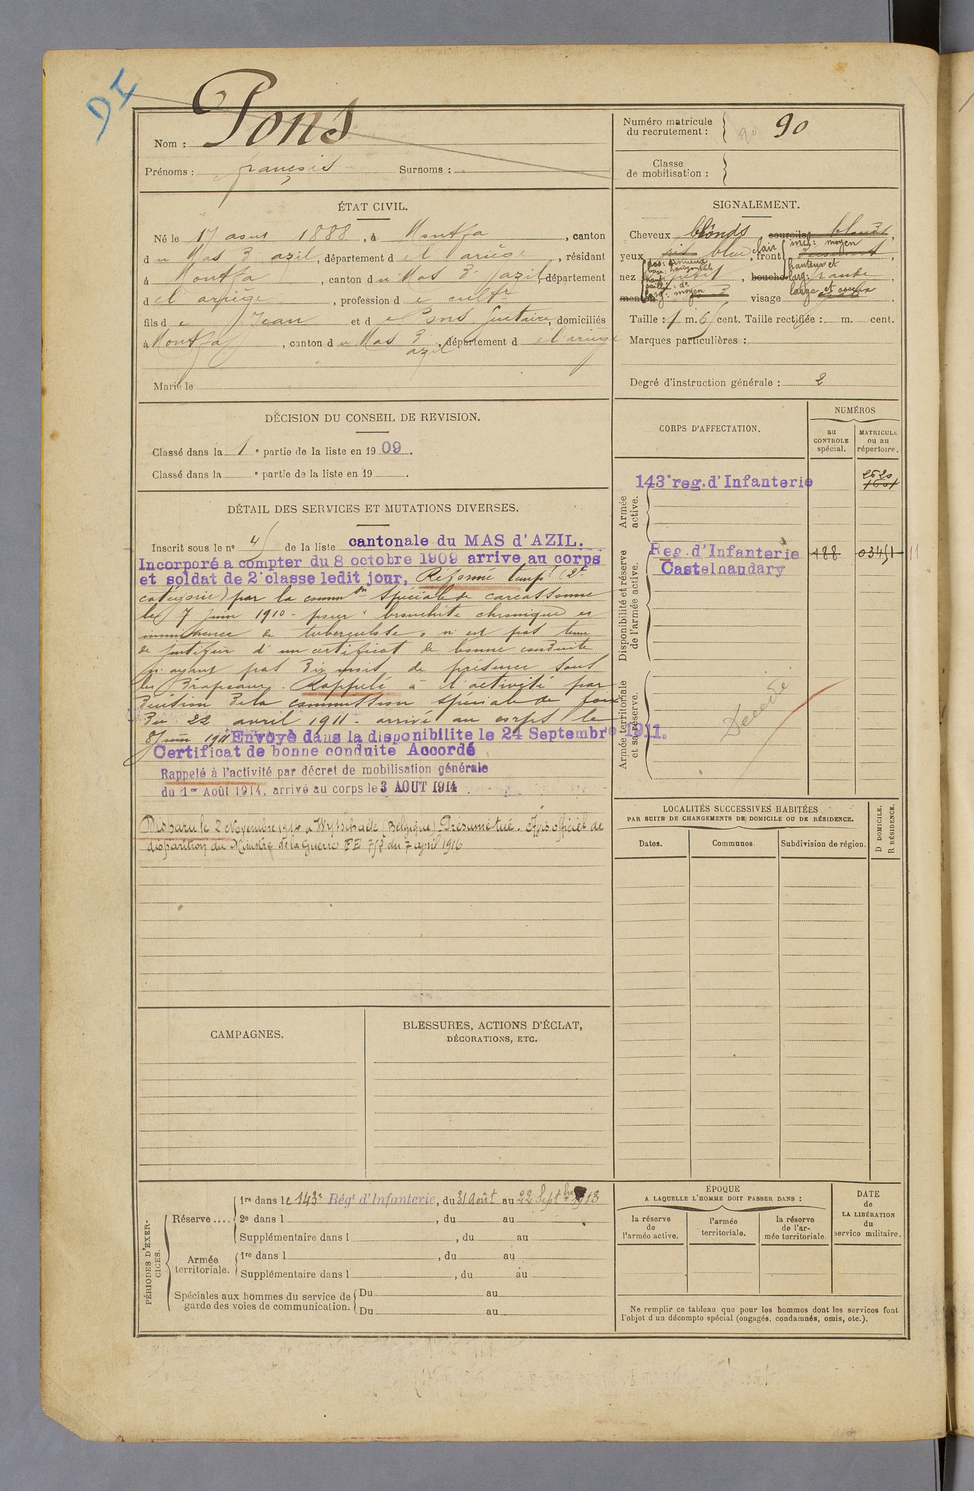 DI
Nom : Pons
Prénoms : françois Surnoms :
Numéro matricule du recrutement : 90
Classe de mobilisation :
ÉTAT CIVIL.
Né le 17 aout 1888, à Montfa, canton
du Mas d'azil, département de l'ariège, résidant
à Montfa, canton du Mas d'azil, département
de l'ariège, profession de cultr
fils de Jean et de Pons, domiciliés
à Montfa, canton du Mas d'azil, département de l'ariège
Marié le
SIGNALEMENT.
Cheveux blonds sourcils blonds,
yeux bleu clair, front incl: moyen
nez bouche grande
menton visage large
Taille : 1 m. 6 cent. Taille rectifiée : m. cent.
Marques particulières :
Degré d'instruction générale : 2
DÉCISION DU CONSEIL DE REVISION.
Classé dans la 1e partie de la liste en 1909.
Classé dans la e partie de la liste en 19 .
CORPS D'AFFECTATION.
NUMÉROS
au CONTROLE spécial.
MATRICULE ou au répertoire.
Armée active.
143e reg. d'Infanterie
2620
Disponibilité et réserve de l'armée active.
Reg. d'Infanterie 188 03451
Castelnaudary
Armée territoriale et sa réserve.
Décédé
DÉTAIL DES SERVICES ET MUTATIONS DIVERSES.
Inscrit sous le no 45 de la liste cantonale du MAS d'AZIL.
Incorporé a compter du 8 octobre 1909 arrive au corps
et soldat de 2e classe ledit jour, Réformé tempre (2e
catégorie) par la common spéciale de carcassonne
le 7 juin 1910 pour bronchite chronique et
imminence de tuberculose, n'est pas tenu
de justifier d'un certificat de bonne conduite
n'ayant pas dix mois de présence sous
les drapeaux. Rappelé à l'activité par
décision de la commission spéciale de foix
du 22 avril 1911. arrivé au corps le
8 juin 1911 Envoyé dans la disponibilite le 24 Septembre 1911.
Certificat de bonne conduite Accordé
Rappelé à l'activité par décret de mobilisation générale
du 1er Août 1914, arrivé au corps le 3 AOUT 1914
Disparu le 2 Novembre 1914 à Wytschaete (Belgique) Présumé tué. Avis officiel de
disparition du Ministre de la Guerre du 7 avril 1916
LOCALITÉS SUCCESSIVES HABITÉES
PAR SUITE DE CHANGEMENTS DE DOMICILE OU DE RÉSIDENCE.
Dates. Communes. Subdivision de région.
D DOMICILE.
R RÉSIDENCE.
CAMPAGNES.
BLESSURES, ACTIONS D'ÉCLAT,
DÉCORATIONS, ETC.
PÉRIODES D'EXERCICES.
Réserve .... 1re dans le 143e Régt d'Infanterie, du 31 Août au 22 Septbre 1913
2e dans l , du au
Supplémentaire dans l , du au
Armée territoriale. 1re dans l , du au
Supplémentaire dans l , du au
Spéciales aux hommes du service de garde des voies de communication. Du au
Du au
ÉPOQUE
A LAQUELLE L'HOMME DOIT PASSER DANS :
la réserve de l'armée active.
l'armée territoriale.
la réserve de l'armée territoriale.
DATE de LA LIBÉRATION du service militaire.
Ne remplir ce tableau que pour les hommes dont les services font
l'objet d'un décompte spécial (engagés, condamnés, omis, etc.).